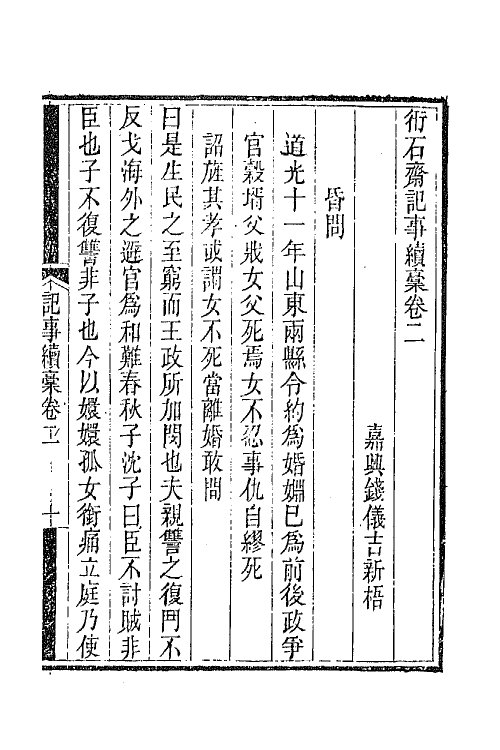 衎石齋記事續稾卷二
嘉興錢儀吉新梧
昏問
道光十一年山東兩縣令約爲婚姻已爲前後政爭
官穀壻父戕女父死焉女不忍事仇自繆死
詔旌其孝或謂女不死當離婚敢問
曰是生民之至窮而王政所加閔也夫親讐之復鬥不
反戈海外之避官爲和難春秋子沈子曰臣不討賊非
臣也子不復讐非子也今以嬛嬛孤女銜痛立庭乃使
記事續稾卷二
一